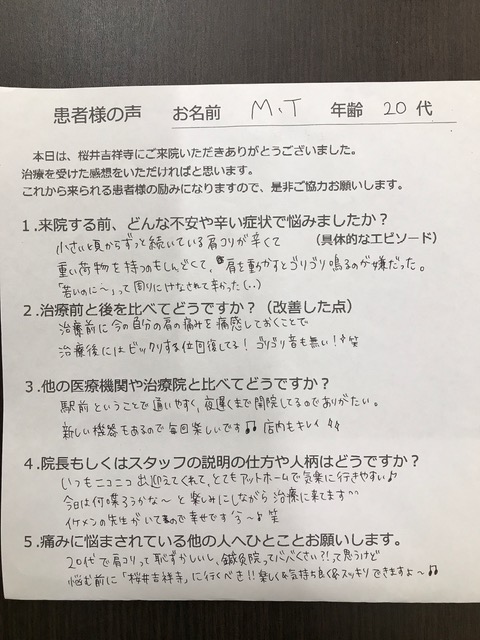 患者様の声 お名前 M、T 年齢 20 代
本日は、桜井吉祥寺にご来院いただきありがとうございました。
治療を受けた感想をいただければと思います。
これから来られる患者様の励みになりますので、是非ご協力お願いします。
1.来院する前、どんな不安や辛い症状で悩みましたか?
(具体的なエピソード)
小さい頃からずっと続いている肩コリが辛くて
重い荷物を持つのもしんどくて、肩を動かすとゴリゴリ鳴るのが嫌だった。
「若いのに~」って周りにけなされて辛かった(、、)
2.治療前と後を比べてどうですか?(改善した点)
治療前に今の自分の肩の痛みを痛感しておくことで
治療後にはビックリする位回復してる!ゴリゴリ音も無い!笑
3.他の医療機関や治療院と比べてどうですか?
駅前ということで通いやすく、夜遅くまで開院してるのでありがたい。
新しい機器もあるので毎回楽しいです♫ 店内もキレイ♪♪
4.院長もしくはスタッフの説明の仕方や人柄はどうですか?
いつもニコニコ出迎えてくれて、とてもアットホームで気楽に行きやすい♪
今日は何喋ろうかな~と楽しみにしながら治療に来てます^^
イケメンの先生がいてるので幸せです 笑
5.痛みに悩まされている他の人へひとことお願いします。
20代で肩コリって恥ずかしいし、鍼灸院ってババくさい?!って思うけど
悩む前に「桜井吉祥寺」に行くべき!!楽しく&気持ち良く&スッキリできますよ~♫